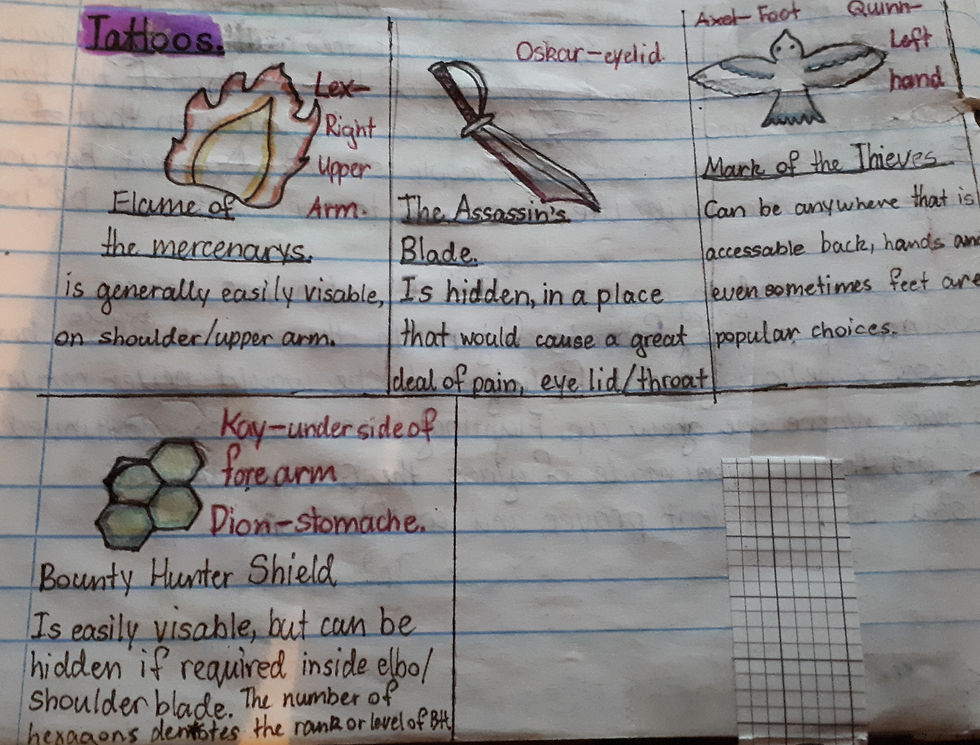 Tattoos.
Lex-
Right
Upper
Arm.
Flame of
the mercenarys.
is generally easily visable,
on shoulder/upper arm.
Oskar-eyelid
The Assassin's
Blade.
Is hidden, in a place
that would cause a great
deal of pain, eye lid/throat
Axel-Foot
Quinn-
Left
hand
Mark of the Thieves
Can be anywhere that is
accessable back, hands and
even sometimes feet are
popular choices.
Kay-underside of
fore arm
Dion-stomache.
Bounty Hunter Shield
Is easily visable, but can be
hidden if required inside elbo/
shoulder blade. The number of
hexagons denotes the rank or level of BH